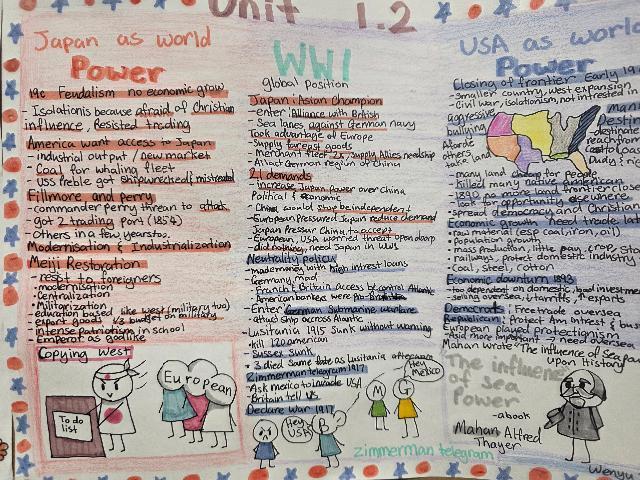 Unit 1.2
Japan as world
Power
19c Feudalism no economic grow
- Isolationis because afraid of Christian
influence, Resisted trading
America want access to Japan
- industrial output / new market
- Coal for whaling fleet
- USS treble got shipwrecked & mistreated
Fillmore, and perry
- commander perry threan to attak
- got 2 trading port (1854)
- Others in a few years to.
Modernisation & Industrialization
Meiji Restoration
- resist to foreigners
- modernisation
- Centralization
- Militarization
- education based like West (military two)
- export goods 1/3 budget on military
- intense patriotism in school
- Emperor as godlike
Copying West
To do
list
European
WW1
global position
Japan: Asian Champion
- enter Alliance with British
- Sea lanes against German navy
Took advantage of Europe
- Supply Europe goods
- Merchant fleet 2x, supply Allies needship
- Attact German region of China
21 demands
- increase Japan power over China
Political & economic
- China would stop be independent
- European pressured Japan reduce demand
- Japan pressur China to accept
- European, USA worried threat open door
- did nothing, need Japan in WW1
Neutrality policy
- made money with high intrest loans
Germany, mad
- France + Britain access b/c control Atlantic
- American bankers were
- Enter German Submarine warfare
- attack ship across Atlantic
- Lusitania 1915 Sunk without warning
kill 120 american
- Sussex sunk
- 3 died same fate as Lusitania
Zimmerman telegram 1917
- Ask mexico to invade USA
- Britain tell US
Declare war 1917
Hey
USA!
B
M
G
Hey
Mexico
zimmerman telegram
USA as world
Power
Closing of frontier Early 19
- Smaller country, west expansion
- Civil war, isolationism, not intrested in
aggressive
bullying
Afforde
others
land
Destin
- destinate
reach from
coast to coas
- many land cheap for people
- killed many native american
- 1890 no more land frontier close
- look for opportunity elsewhere
- spread democracy and Christian
Economic growth need trade
- raw material (esp coal, iron, oil)
- population growth
- mass production, little pay, crop,
- railways, protect domestic industry
- Coal, steel, cotton
Economic downturn 1893
- too dependent on domestic, bad investmen
- selling oversea, ↓ tarriffs, ↑ exports
Democrats: Free trade oversea
Republican: Protect Am intrest & bus
European played protectionist
- Asia more important → need oversea
Mahan wrote "The influence of Sea pow
upon History
The influence
of sea
Power
- a book
Mahan Alfred
Thayer
Wenyu